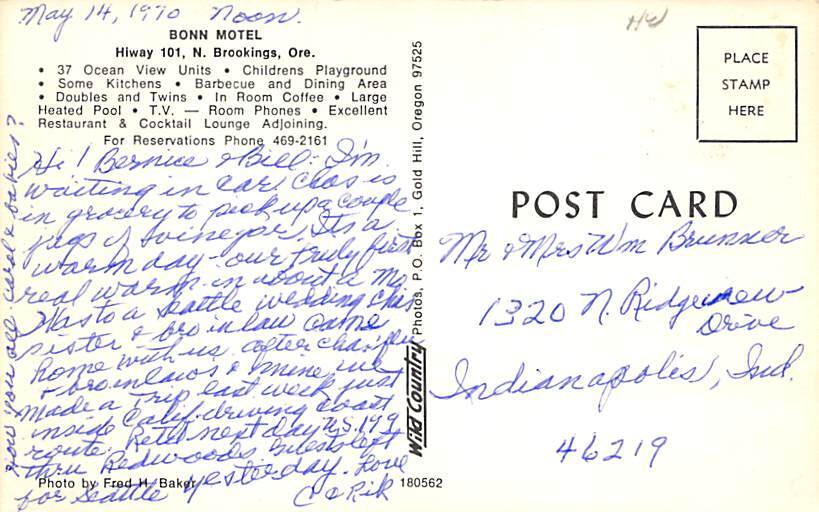 May 14, 1970 Noon.
BONN MOTEL
Hiway 101, N. Brookings, Ore.
• 37 Ocean View Units • Childrens Playground
• Some Kitchens • Barbecue and Dining Area
• Doubles and Twins • In Room Coffee • Large
Heated Pool • T.V. — Room Phones • Excellent
Restaurant & Cocktail Lounge Adjoining.
For Reservations Phone 469-2161
Hi! Bernice & Bill: I'm
waiting in car. Chas is
in grocery to pick up a couple
jugs of vinegar. Its a
warm day - our truly first
real warm in about a mo.
Was to a Seattle wedding Chas
sister & bro in law came
home with us. after
& bro inlaws & mine, we
made a trip last week just
inside Calif. driving coast
route. Retd next day U.S. 199
thru Redwoods. Guests left
for Seattle yesterday. Love
C & Rik
How you all. Carol & babies?
Photo by Fred H. Baker
180562
Wild Country Photos, P.O. Box 1, Gold Hill, Oregon 97525
PLACE
STAMP
HERE
POST CARD
Mr & Mrs Wm Brunner
1320 N. Ridgeview
Drive
Indianapolis, Ind.
46219